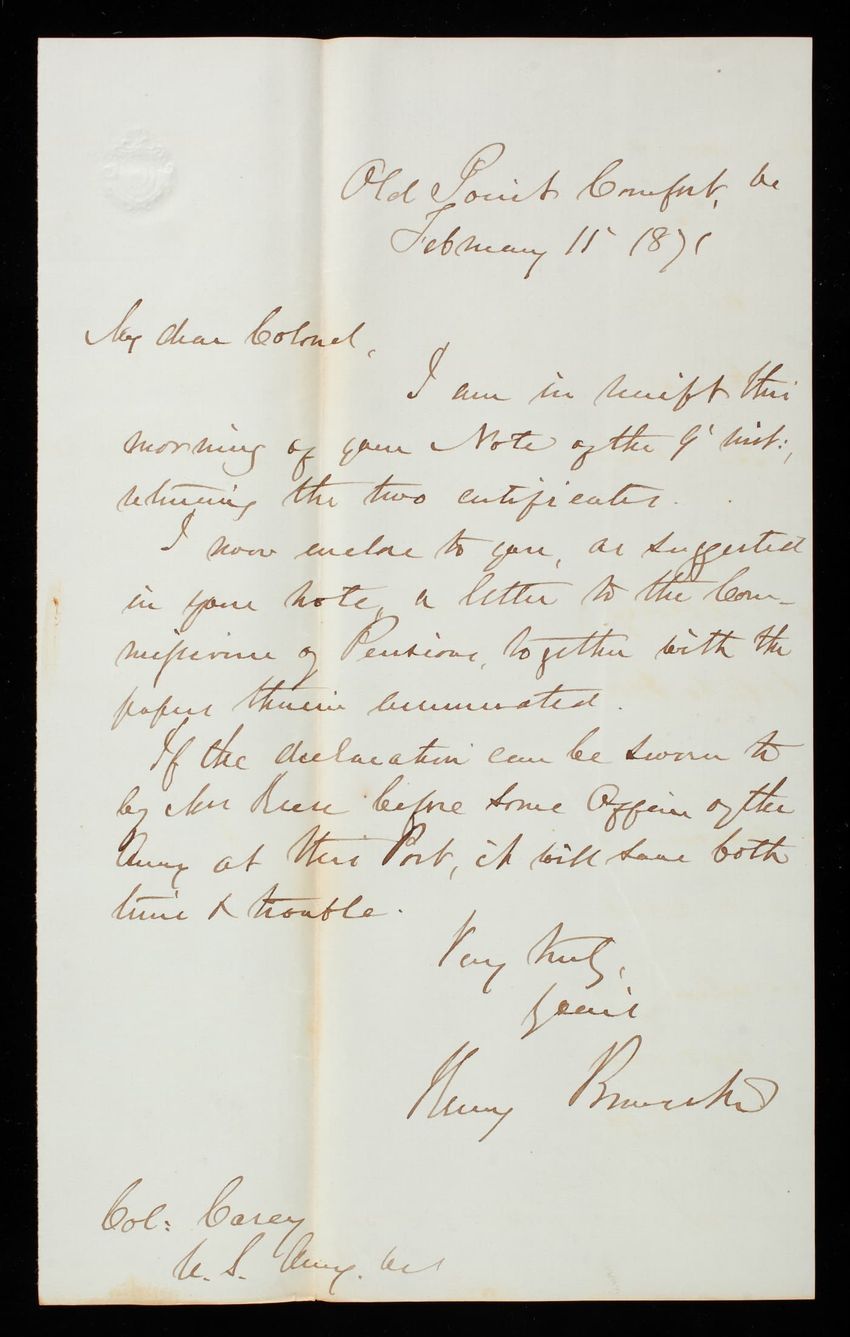 Old Point Comfort, Va
February 11 1871
My dear Colonel,
I am in receipt this
morning of your Note of the 9' inst:,
returning the two certificates.
I now enclose to you, as suggested
in your note, a letter to the Com-
missioner of Pensions, together with the
papers therein enumerated.
If the declaration can be sworn to
by Mrs before some Officer of the
Army at this Post, it will save both
time & trouble.
Very truly,
Yours
Henry
Col: Casey
U. S. Army.